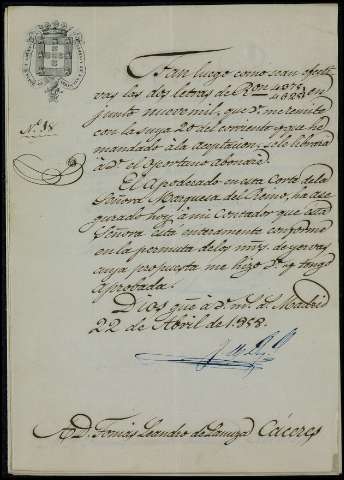 Tan luego como sean efecti-
vas las dos letras de Rv on 4978 4022 en
junto nueve mil, que V. me remite
con la suya 20 del corriente y que he
mandado à la aceptacion, se le librará
à V. el oportuno abonaré.
Nº 38
El Apoderado en esta Corte de la
Señora Marquesa del Reino, ha ase-
gurado hoy à mi Contador que esta
Señora está enteramente conforme
en la permuta de los mrs. de yervas
cuya propuesta me hizo V. y tengo
aprobada.
Dios gue à V. m.s a.s Madrid
22 de Abril de 1858.
A D. Tomás Leandro de Lamiza Cáceres